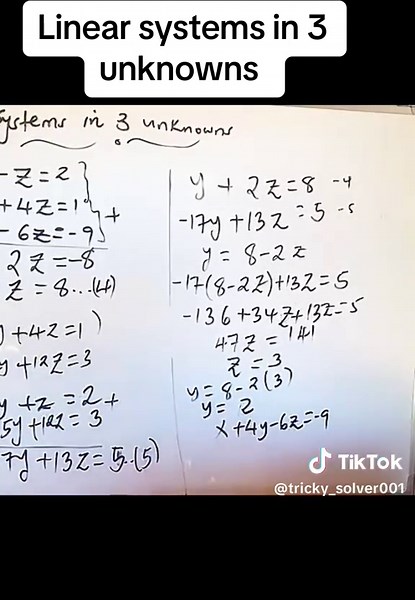 Linear systems in 3
unknowns
ystems in 3 unknowns
- z = 2
+ 4z = 1
- 6z = -9
+
2z = -8
z = 8...(4)
y + 4z = 1
y + 12z = 3
y + z = 2 +
5y + 12z = 3
7y + 13z = 5..(5)
y + 2z = 8 -4
-17y + 13z = 5 -5
y = 8 - 2z
-17(8-2z)+13z = 5
-136 + 34z + 13z = 5
47z = 141
z = 3
y = 8 - 2(3)
y = 2
x + 4y - 6z = -9
TikTok
@tricky_solver001